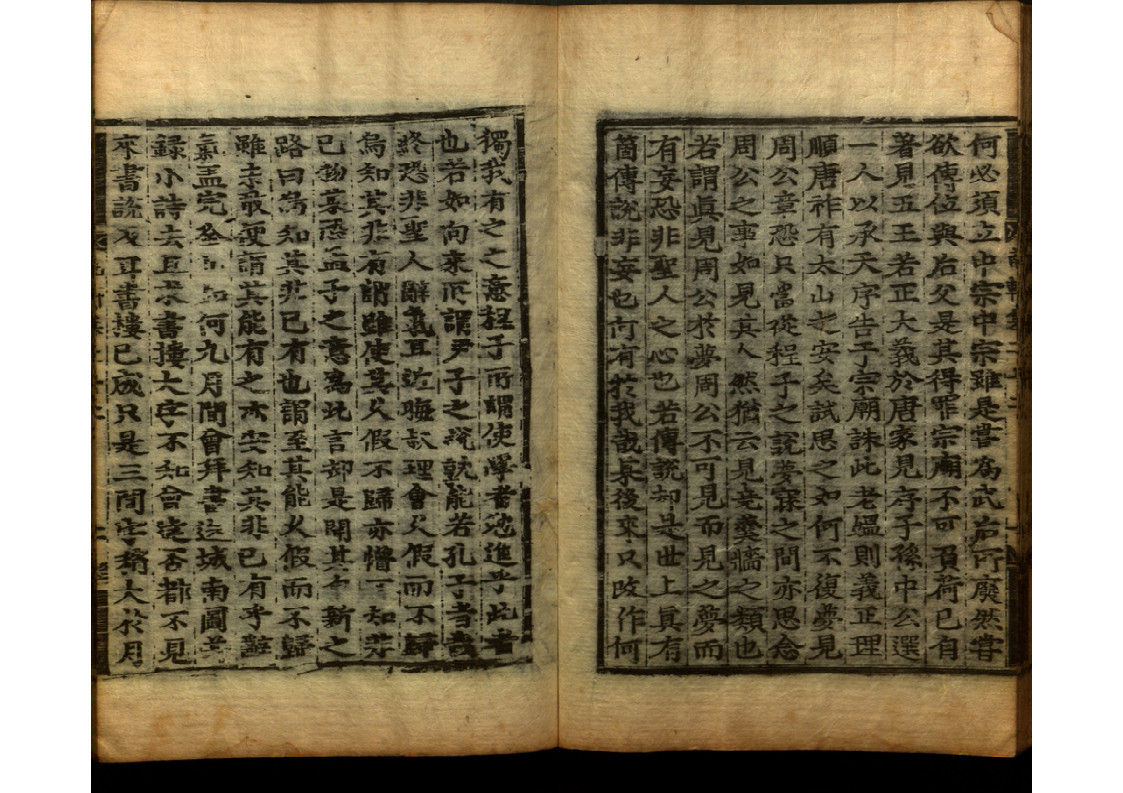 何必須立中宗中宗雖是嘗為武后所廢然嘗
欲傳位與后父是其得罪宗廟不可負荷已自
著見五王若正大義於唐家見存子孫中公選
一人以承天序告于宗廟誅此老媼則義正理
順唐祚有太山之安矣試思之如何不復夢見
周公章恐只當從程子之說夢寐之間亦思念
周公之事如見其人然猶云見堯羹牆之類也
若謂真見周公於夢周公不可見而見之夢而
有妄恐非聖人之心也若傳說却是世上真有
箇傳說非妄也何有於我哉某後來只改作何
獨我有之之意程子所謂使學者勉進乎此者
也若如向來所謂尹子之說就能若孔子者哉
終恐非聖人辭氣且近晦叔理會久假而不歸
烏知其非有謂雖使其久假不歸亦懵不知其
已物某恐孟子之意為此言却是開其自新之
路曰烏知其非已有也謂至其能久假而不歸
雖未敢便謂其能有之亦安知其非已有乎辭
氣盖完全 如何九月間會拜書近城南圖并
錄小詩去且求書樓大字不知會達否都不見
來書說及耳書樓已成只是三間字稍大於月